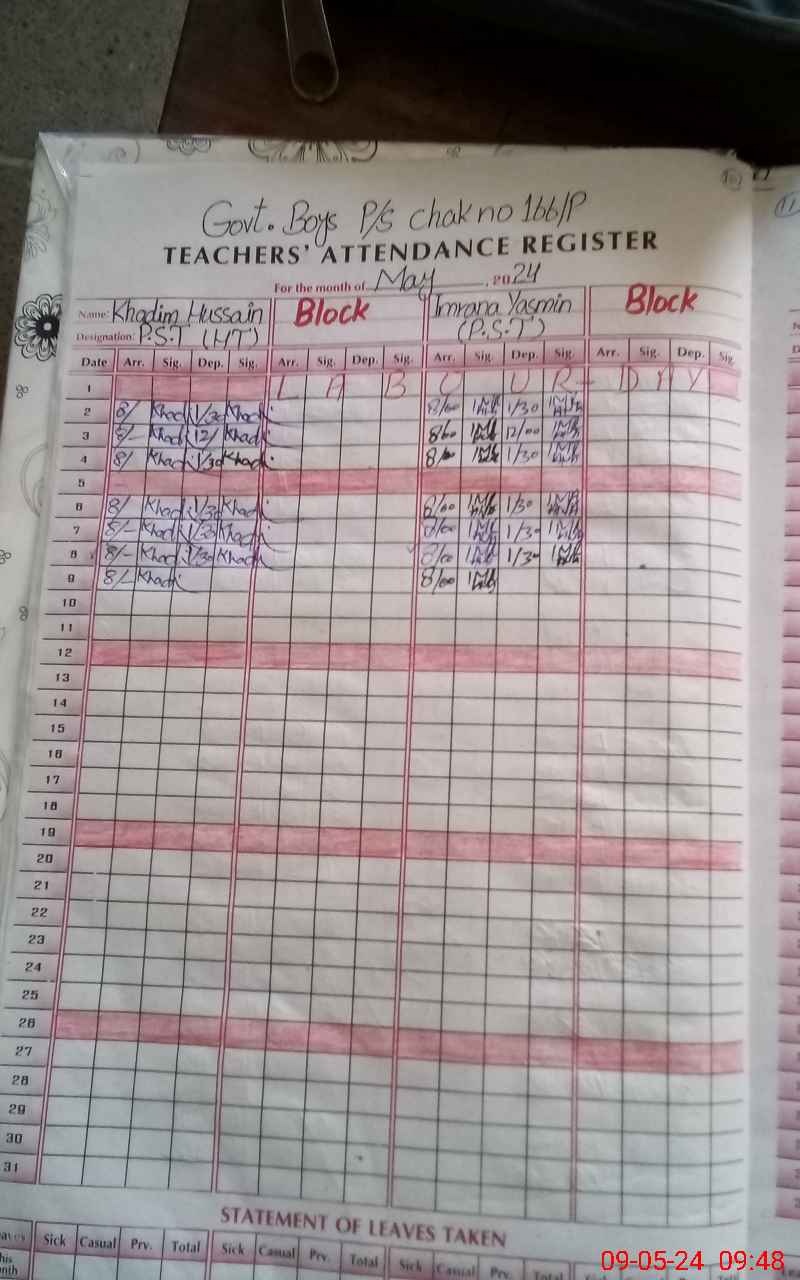 Govt. Boys P/S chak no 166/P
TEACHERS' ATTENDANCE REGISTER
For the month of May, 2024
Name: Khadim Hussain Block Imrana Yasmin Block
Designation: P.S.T (HT) (P.S.T)
Date Arr. Sig. Dep. Sig. Arr. Sig. Dep. Sig. Arr. Sig. Dep. Sig. Arr. Sig. Dep. Sig.
1 L A B O U R DAY
2 8/ Khadi 1/30 Khadi 8/00 1/30
3 8/- Khadi 12/ Khadi 8/00 12/00
4 8/ Khadi 1/30 Khadi 8/00 1/30
5
6 8/ Khadi 1/30 Khadi 8/00 1/30
7 8/- Khadi 1/30 Khadi 8/00 1/30
8 8/- Khadi 1/30 Khadi 8/00 1/30
9 8/- Khadi 8/00
10
11
12
13
14
15
16
17
18
19
20
21
22
23
24
25
26
27
28
29
30
31
STATEMENT OF LEAVES TAKEN
Sick Casual Prv. Total Sick Casual Prv. Total Sick Casual Prv. Total Sick
09-05-24 09:48